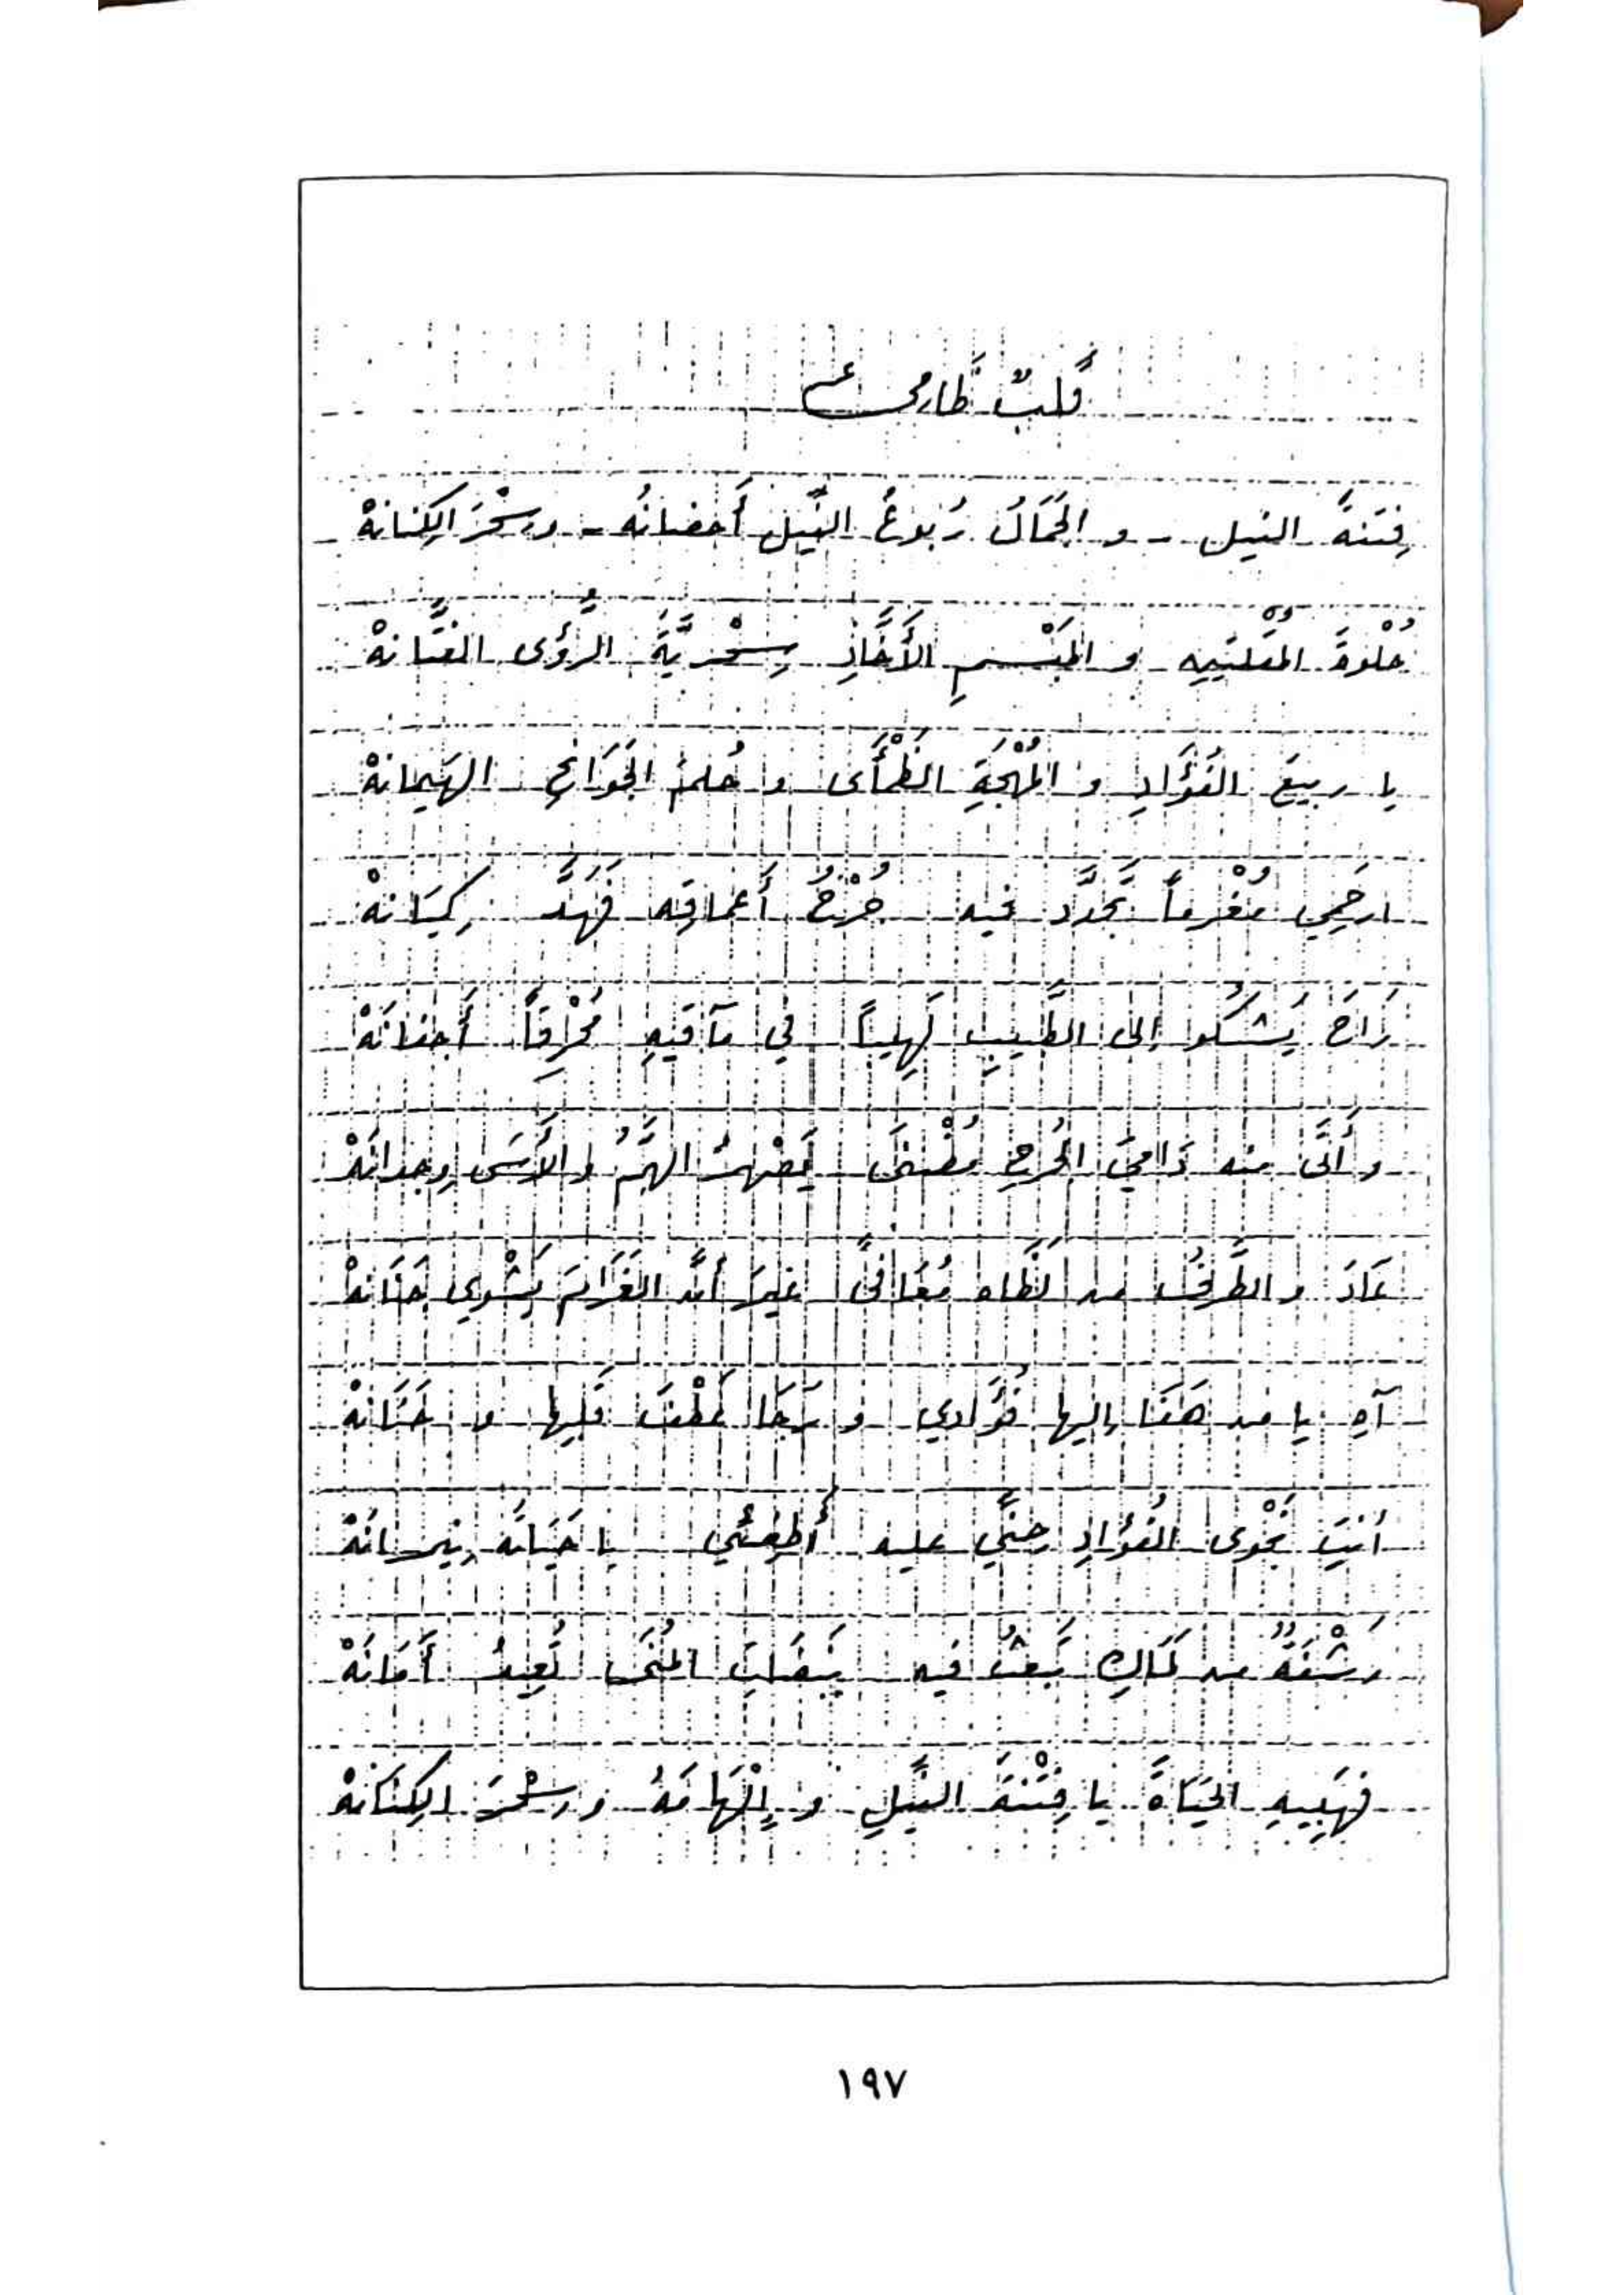 قَلبٌ ظَامِئ
فِتنةَ النيل - و الجَمَالُ رُبوعُ النِّيل أَحضانُه - وسِحْرَ الكِنانهْ
حُلْوةَ المُقْلتيِن و المَبْسمِ الأَخَّاذِ سِحْريَّةَ الرُّؤَى الفتَّانهْ
يا ربيعَ الفُؤَادِ و المُهْجَةِ الظَّمْأَى و حُلمَ الجَوَانحِ الهَيمانهْ
ارحَمِي مُغْرماً تَجدَّدَ فيه جُرْحُ أَعماقِه فَهَدَّ كِيَانهْ
رَاحَ يَشكُو إلى الطَّبيبِ لَهِيباً في مآقيهِ مُحْرِقاً أَجفانَهْ
وأَتَى منه دَامِيَ الجُرحِ مُضْنَى يَصْهرُ الهَمُّ والأَسَى وِجدانَهْ
عَادَ والطَّرفُ من لَظاه مُعَافىً غيرَ أنَّ الغَرَامَ يَشْوِي جَنَانهْ
آهِ يا من هَفَا إليها فُؤَادي و رَجَا عَطْفَ قَلبِها و حَنَانهْ
أنتِ نَجْوى الفُؤادِ حِنِّي عليه أَطفِئي يا حَيَاتَه نِيرانَهْ
رَشْفةٌ من لَمَاكِ تَبعثُ فيه نَبَضَاتِ المُنَى تُعِيدُ أَمَانَهْ
فهَبِيهِ الحَيَاةَ يا فِتْنةَ النِّيلِ و إلْهَامَهُ و سِحْرَ الكِنَانهْ
١٩٧